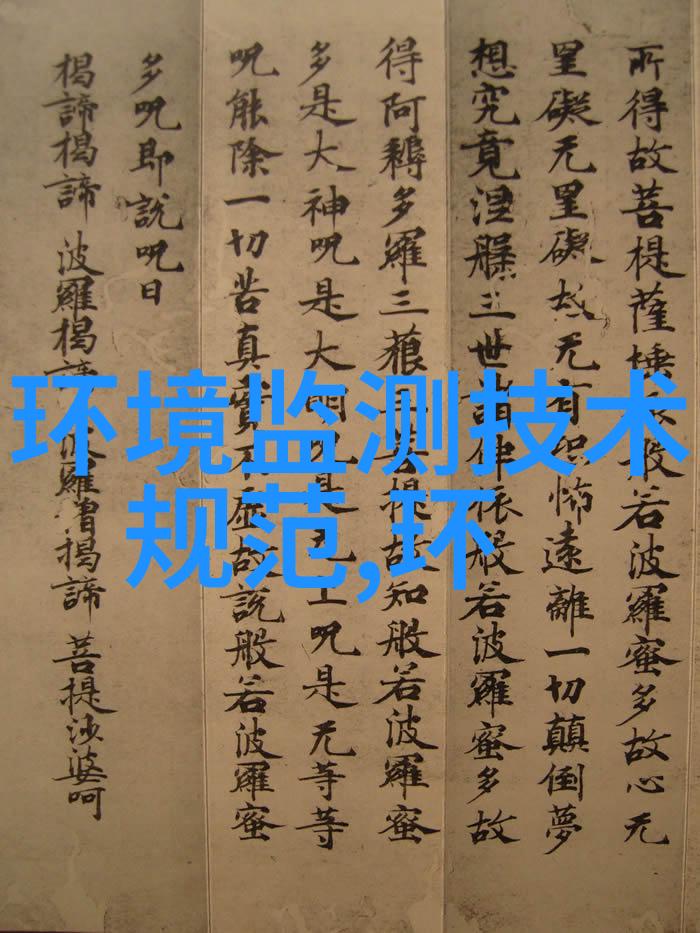 所得故菩提薩埵依般若波羅蜜多故心无
罣礙无罣礙故无有恐怖遠離一切顛倒夢
想究竟涅槃三世諸佛依般若波羅蜜多故
得阿耨多羅三藐三菩提故知般若波羅蜜
多是大神呪是大明呪是无上呪是无等等
呪能除一切苦真實不虛故說般若波羅蜜
多呪即說呪曰
揭諦揭諦 波羅揭諦 波羅僧揭諦 菩提沙婆呵
环境监测技术
规范,环